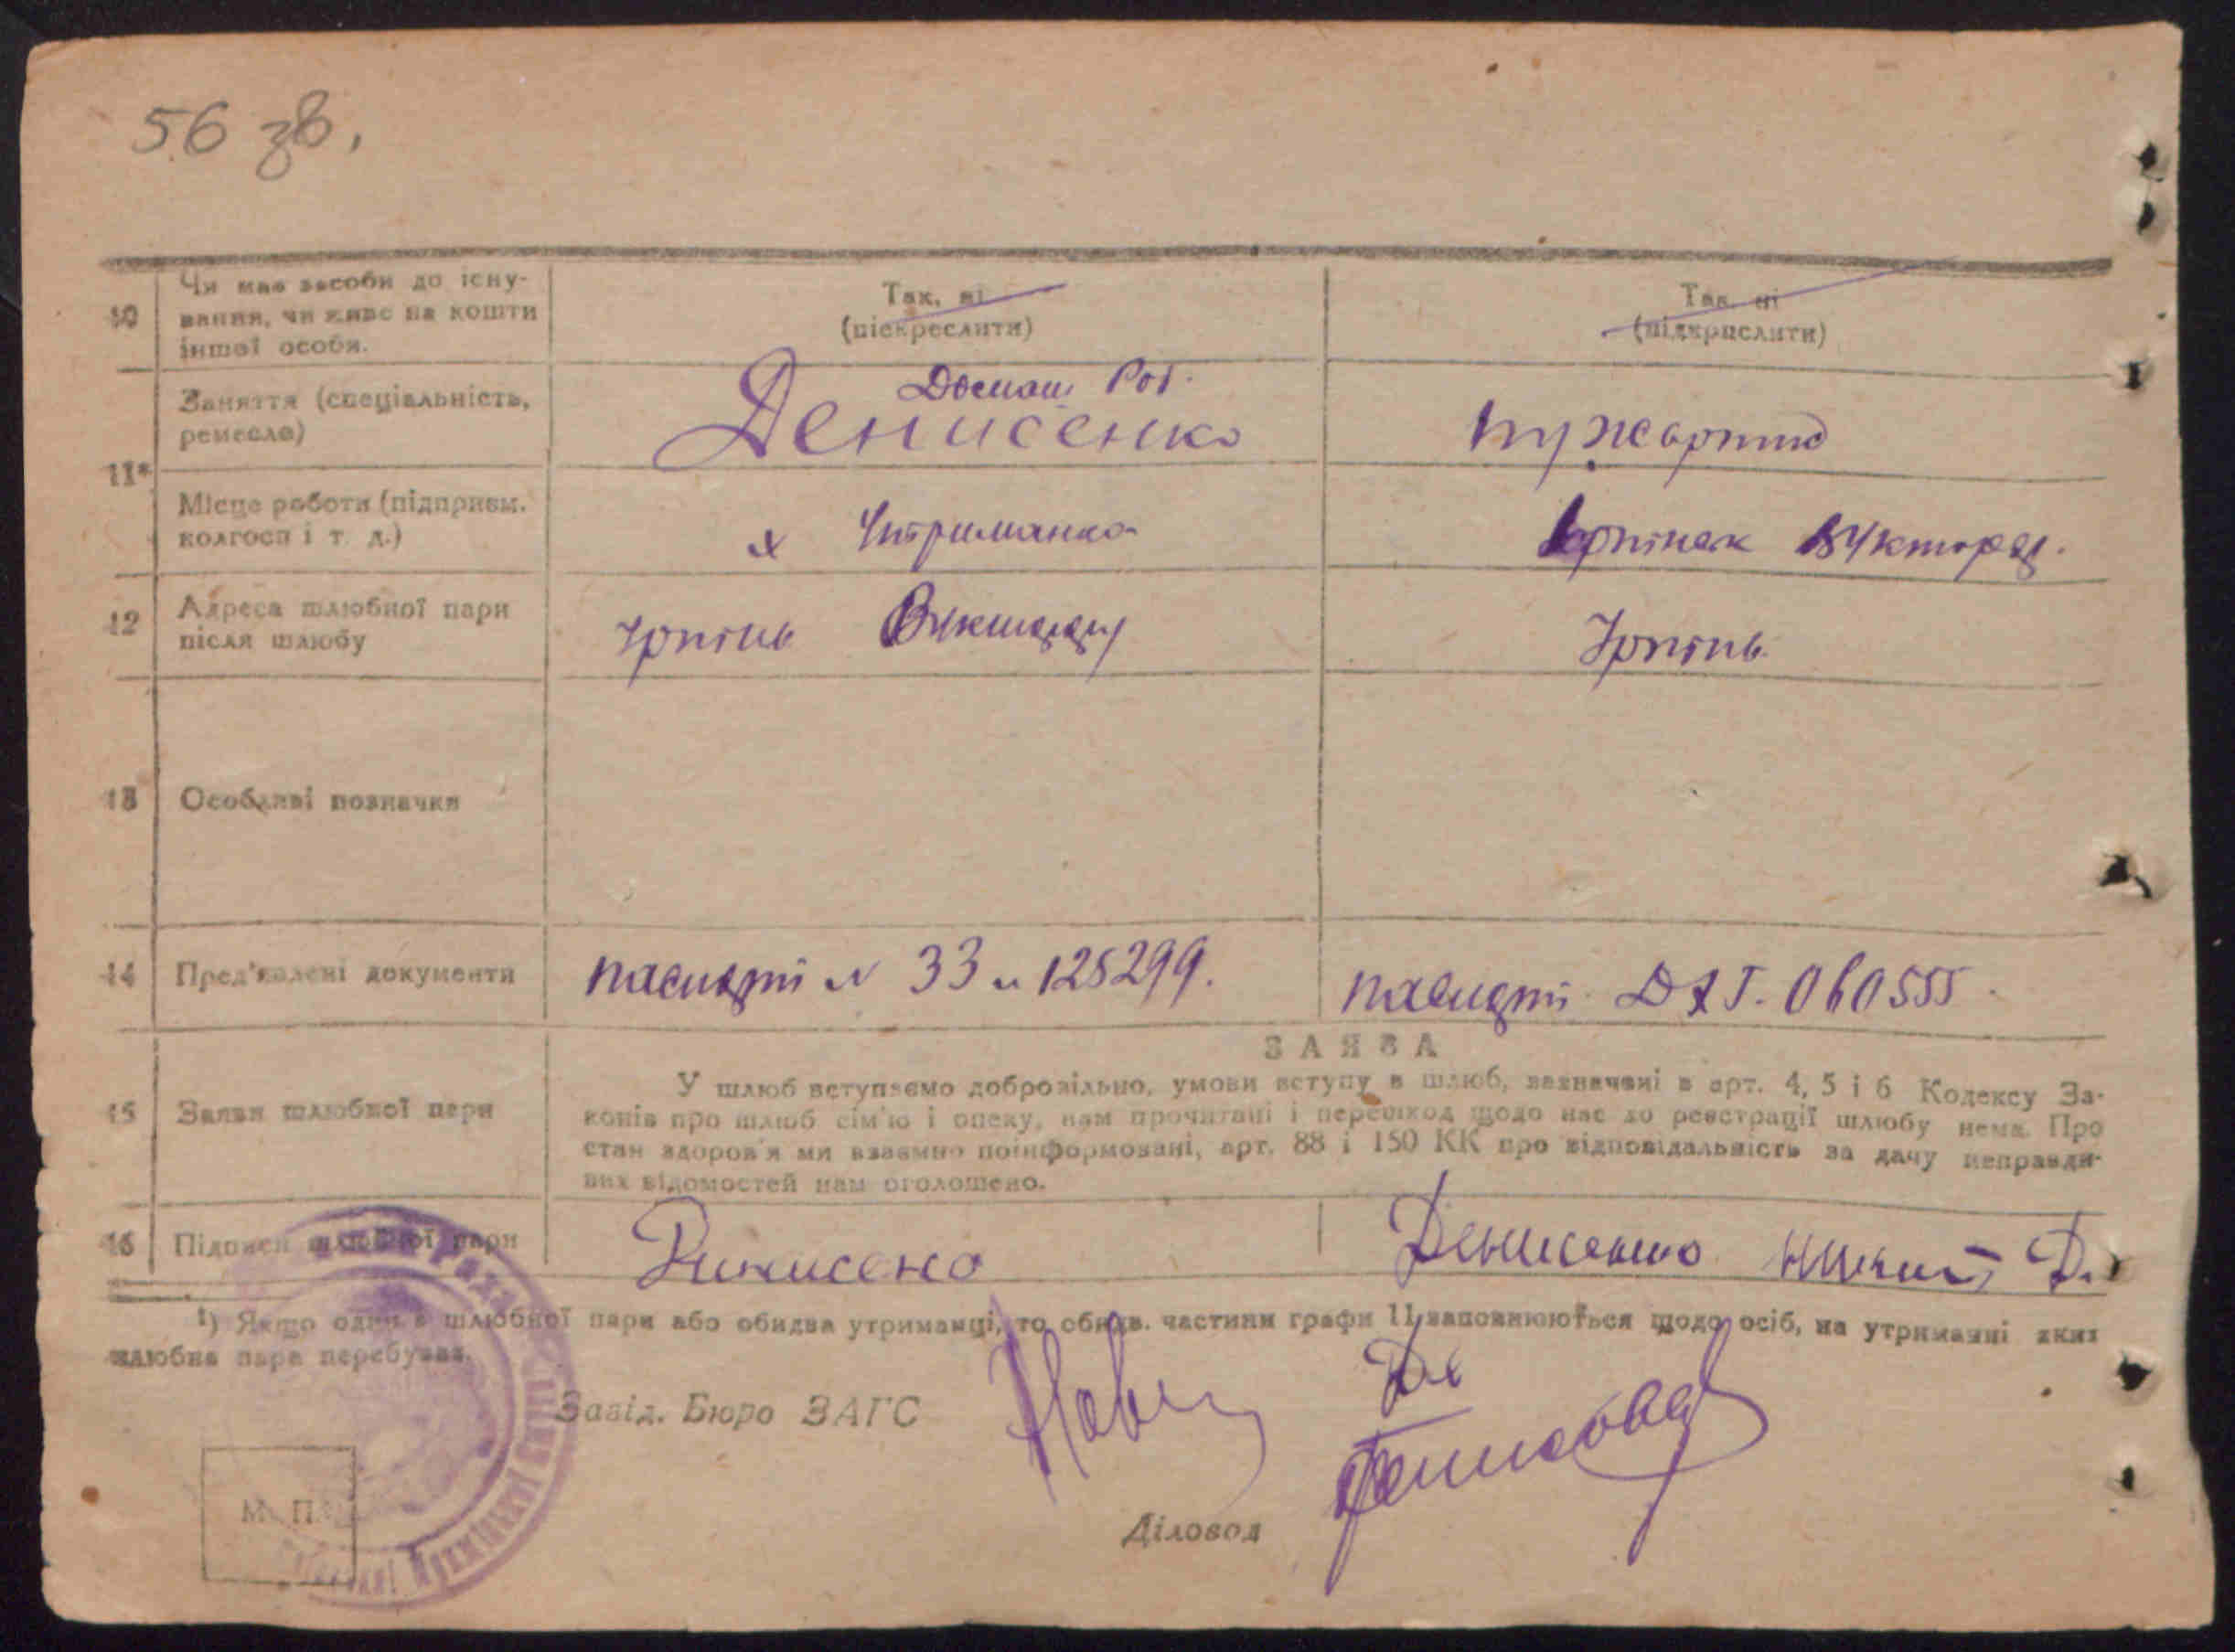 56 зв.
10 Чи має засоби до існування, чи живе на кошти іншої особи.
Так, ні
(підкреслити)
Так, ні
(підкрислити)
11* Заняття (спеціальність, ремесло)
Домаш Роб.
Денисенко
Місце роботи (підприєм. колгосп і т. д.)
х Утриманка
12 Адреса шлюбної пари після шлюбу
Ірпінь
Ірпінь
13 Особливі позначки
14 Пред'явлені документи
паспорт № 33 125299.
паспорт 060555.
15 Заяви шлюбної пари
ЗАЯВА
У шлюб вступаємо добровільно, умови вступу в шлюб, зазначені в арт. 4, 5 і 6 Кодексу За-
конів про шлюб сім'ю і опеку, нам прочитані і перешкод щодо нас до реєстрації шлюбу нема. Про
стан здоров'я ми взаємно поінформовані, арт. 88 і 150 КК про відповідальність за дачу неправди-
вих відомостей нам оголошено.
16 Підписи шлюбної пари
Денисенко Д.
¹) Якщо один з шлюбної пари або обидва утриманці, то обидв. частини графи 11 заповнюються щодо осіб, на утриманні яких
шлюбна пара перебуває.
Завід. Бюро ЗАГС
М. П.
Діловод